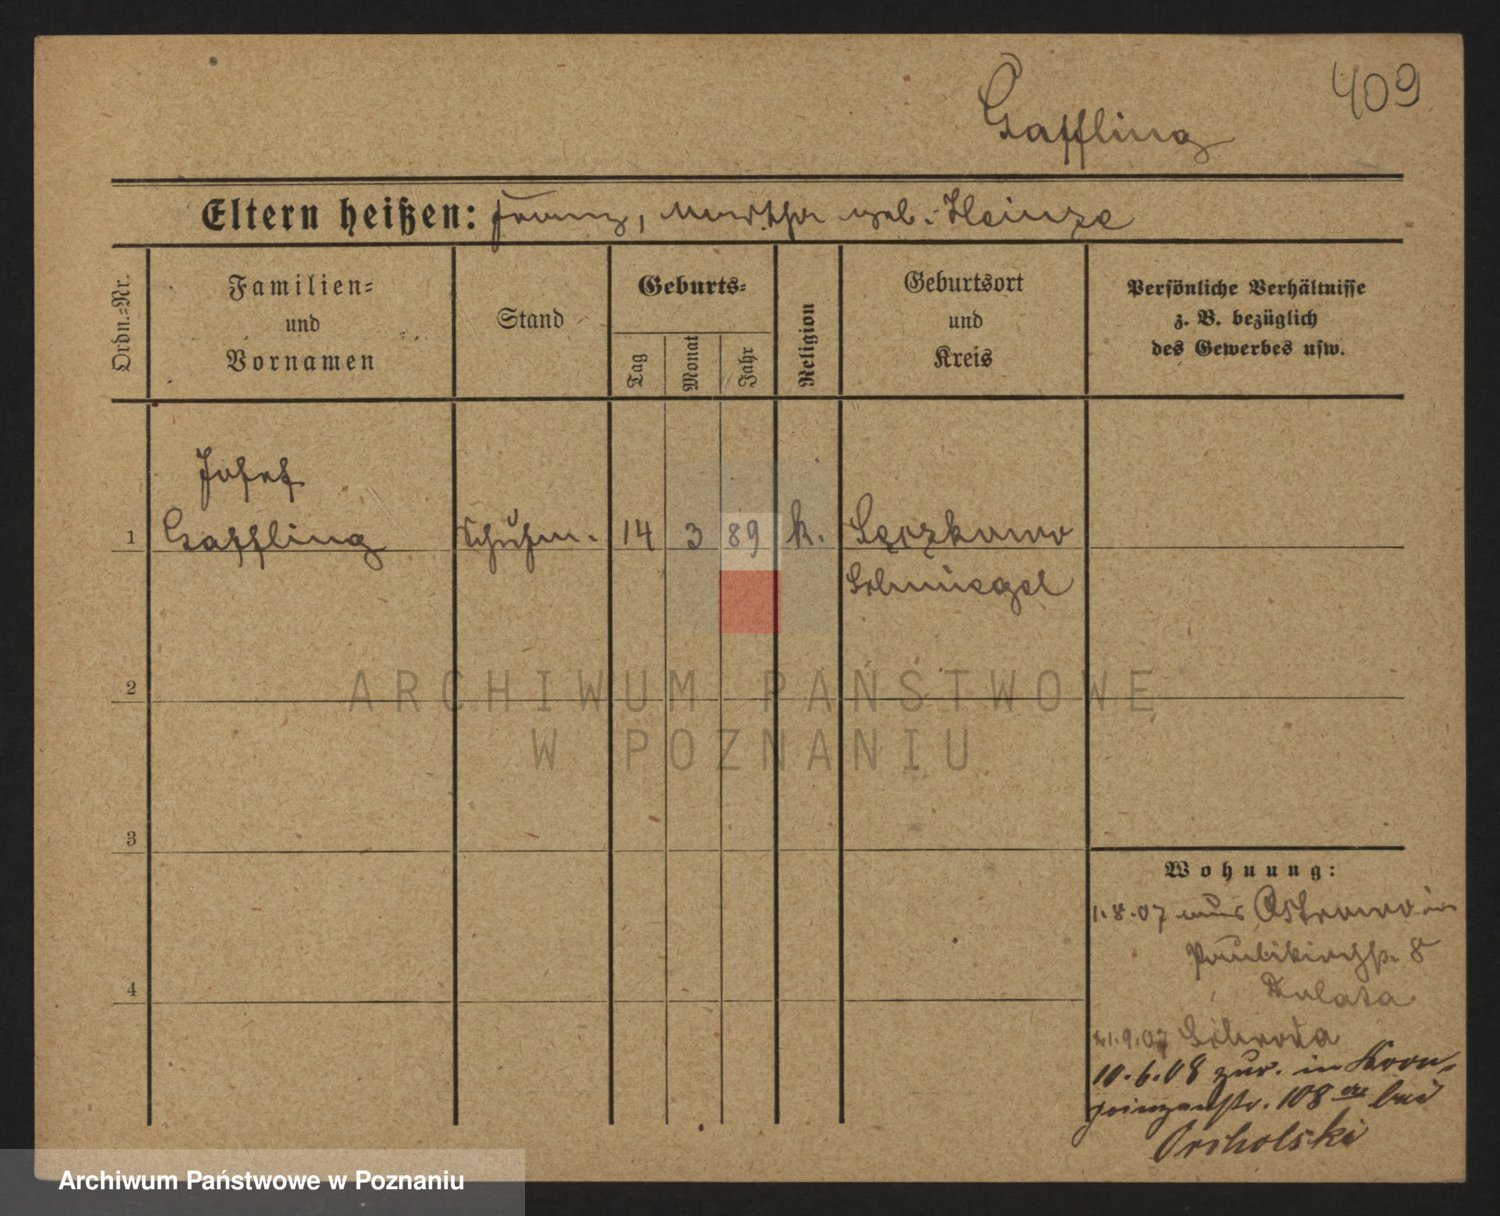 409
Gaffling
Eltern heißen: Franz, Martha geb. Heinze
Ordn.-Nr.
Familien- und Vornamen
Stand
Geburts-
Tag
Monat
Jahr
Religion
Geburtsort und Kreis
Persönliche Verhältnisse
z. B. bezüglich
des Gewerbes usw.
Josef
1 Gaffling Schuhm. 14 3 89 k.
Schmiegel
2
3
4
Wohnung:
1.8.07 aus Ostrowo in
Paulikirchstr. 8
21.9.07 Schroda
10.6.08 zur. in Kron-
prinzenstr. 108 bei
ARCHIWUM PAŃSTWOWE
W POZNANIU
Archiwum Państwowe w Poznaniu